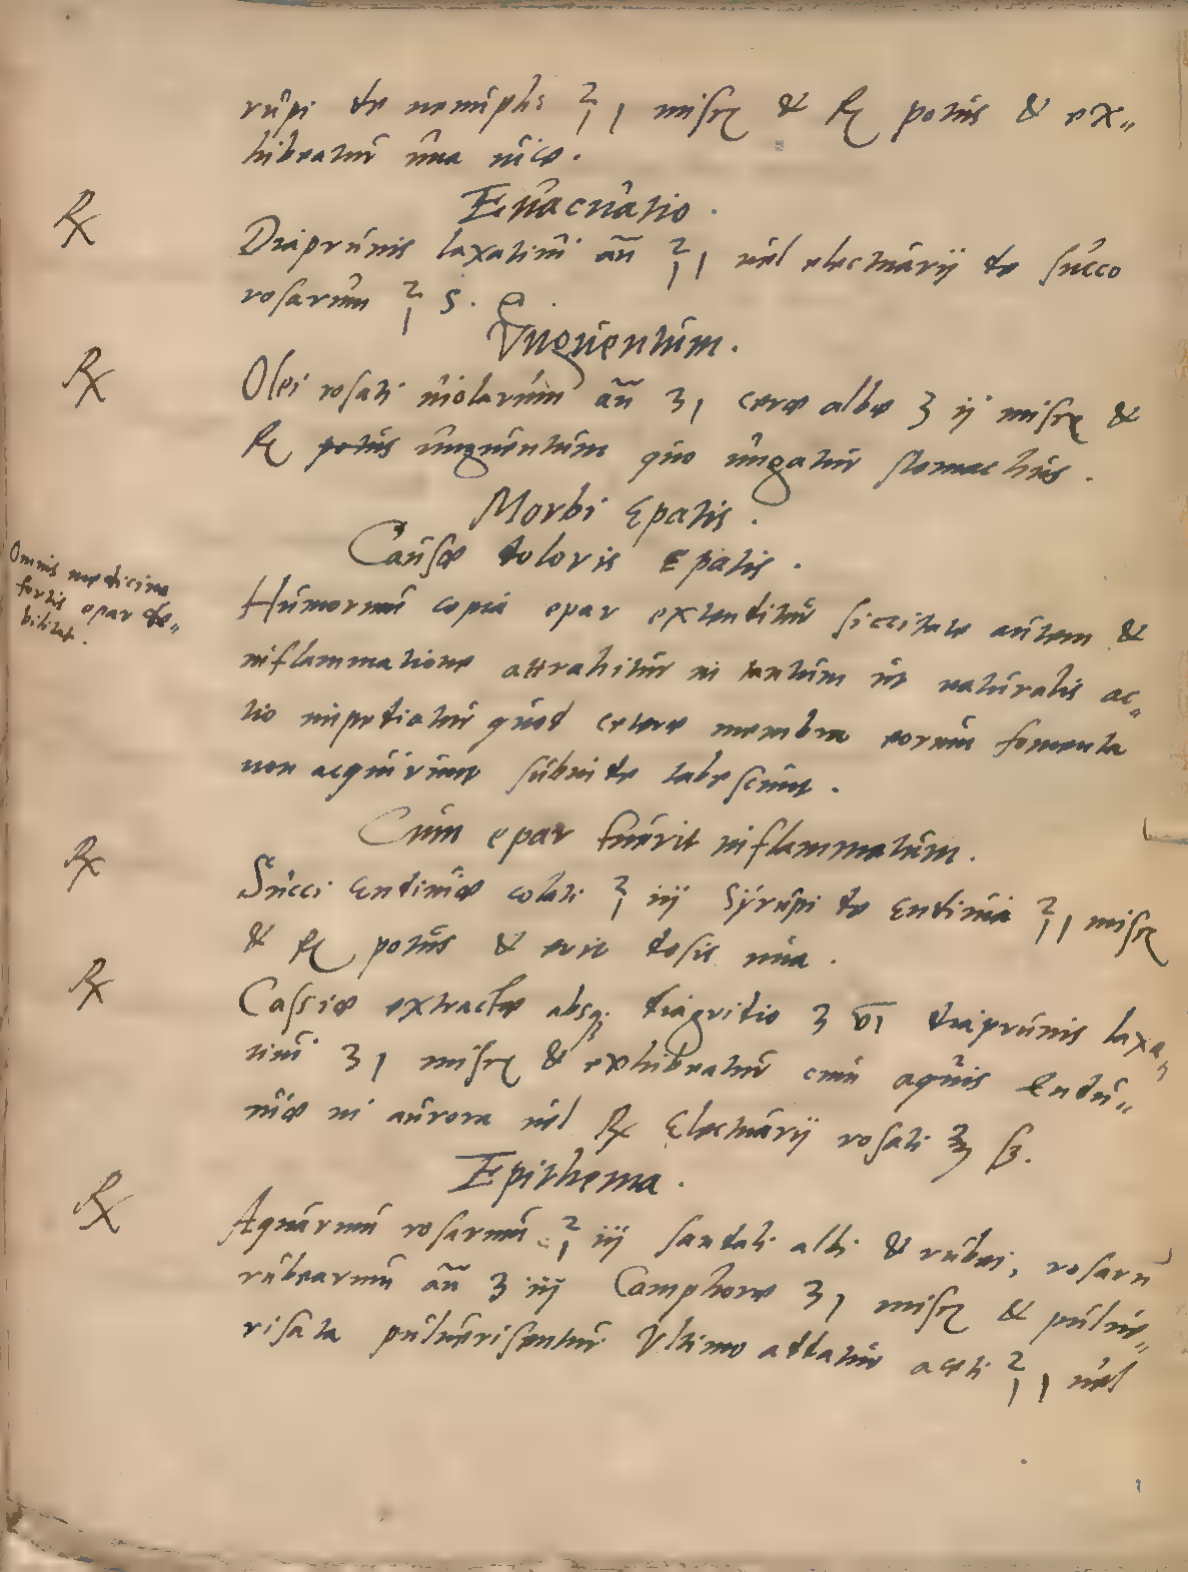 rupi de nemuphe ℥ 1 misce & ℞ potus & ex„
hibeatur una vice.
Evacuatio.
℞ Diaprunis laxativi añ ℥ 1 vel electuarij de succo
rosarum ℥ s.
Unguentum.
℞ Olei rosati violarum añ ʒ 1 ceræ albe ʒ ij misce &
unguentum quo ungatur stomachus.
Morbi Epatis.
Causæ doloris Epatis.
Omnis medicina
fortis epar de„
bilitat.
Humorum copia epar extenditur siccitate autem &
inflammatione attrahitur in tantum ut naturalis ac„
tio impediatur quod cetere membra eorum fomenta
non acquirunt subinde tabescunt.
Cum epar fuerit inflammatum.
℞ Succi Endiviæ colati ℥ iij Syrupi de Endivia ℥ 1 misce
& ℞ potus & erit dosis una.
℞ Cassiæ extractæ absq; diagridio ʒ vi diaprunis laxa„
tivi ʒ 1 misce & exhibeatur cum aquis Endu„
viæ in aurora vel ℞ Electuarij rosati ʒ ß.
Epithema.
℞ Aquarum rosarum ℥ iij sandali albi & rubei, rosaru
rubearum añ ʒ iij Camphore ʒ 1 misce & pulve„
risata pulverisentur Ultimo addatur aceti ℥ 1 vel